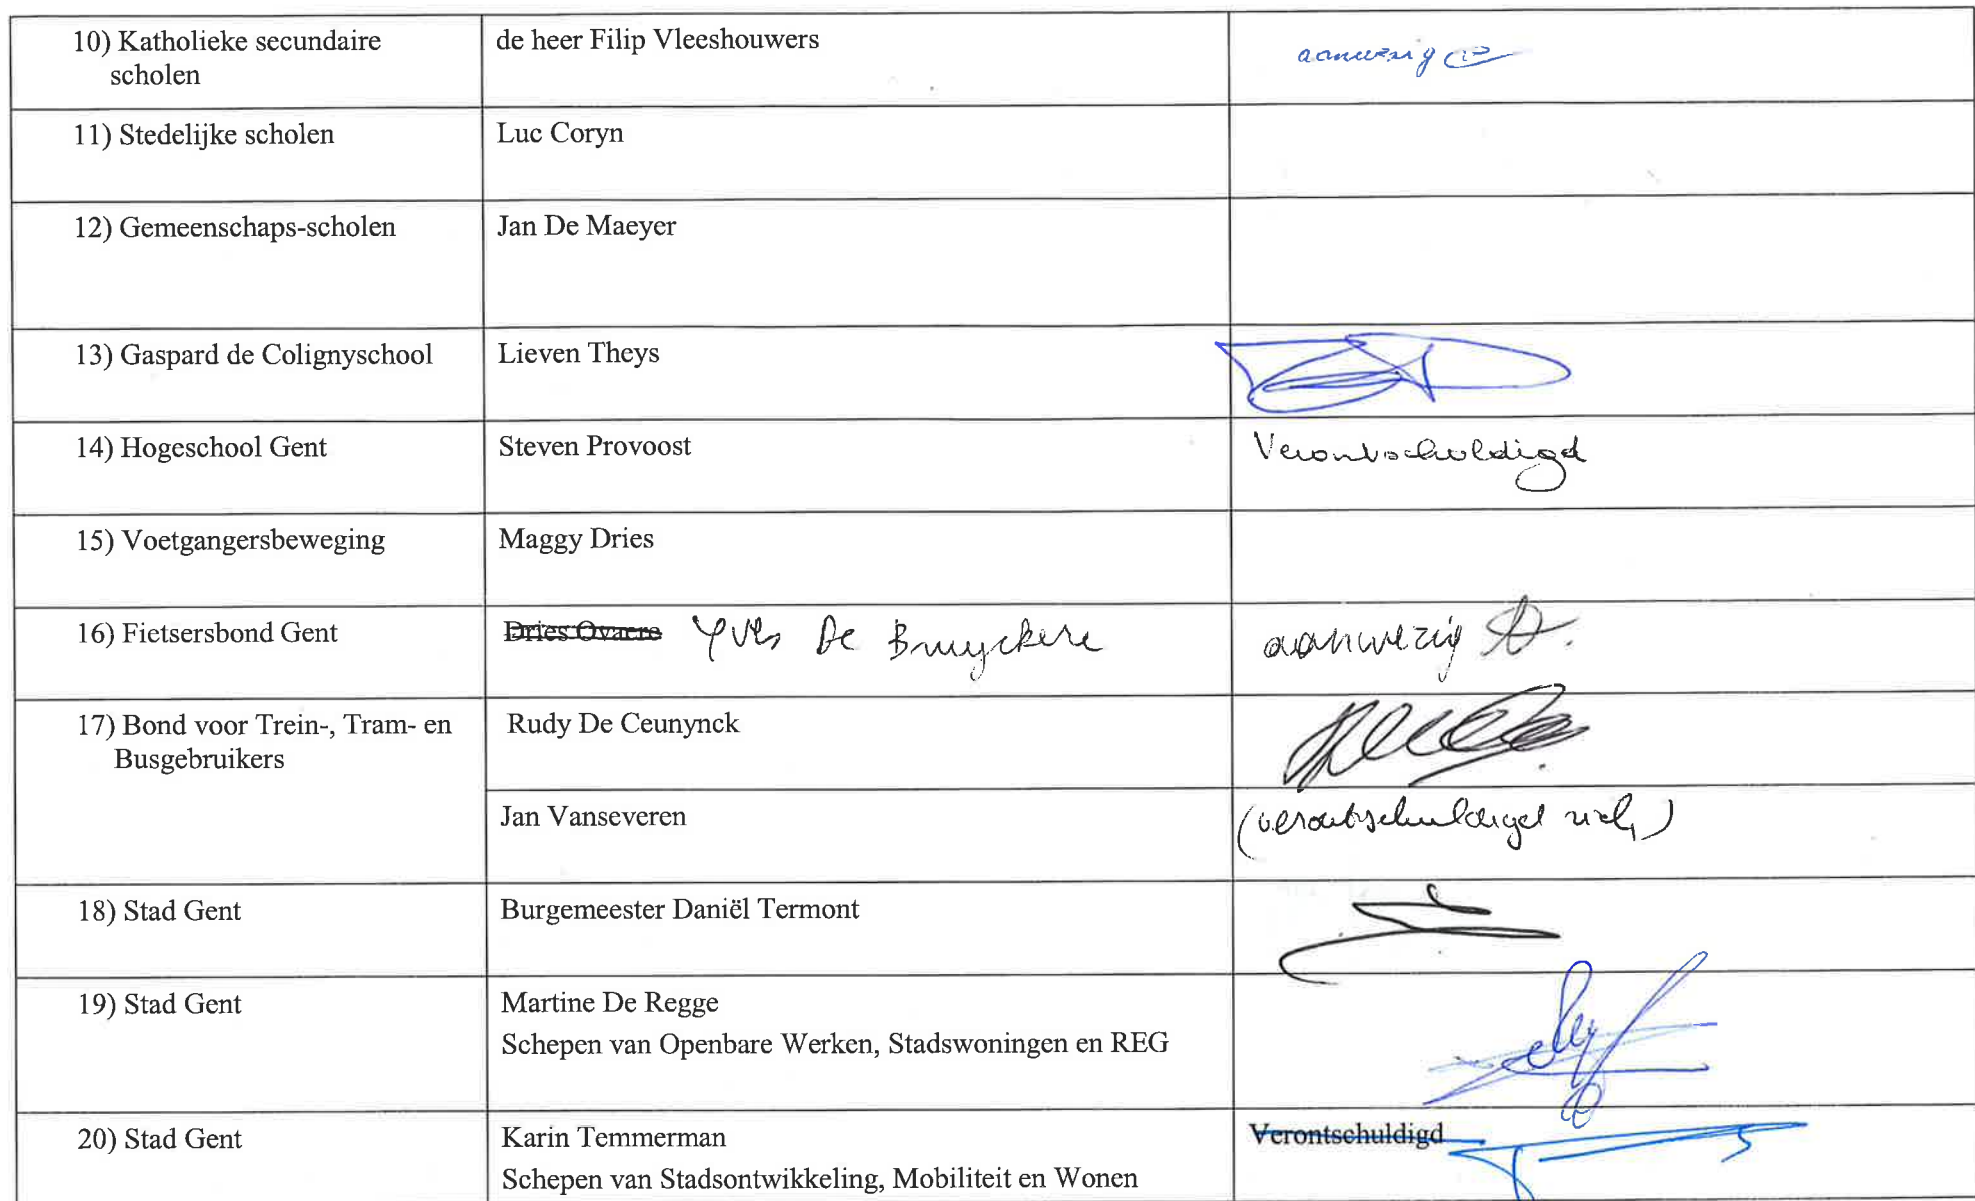 10) Katholieke secundaire scholen de heer Filip Vleeshouwers aanwezig
11) Stedelijke scholen Luc Coryn
12) Gemeenschaps-scholen Jan De Maeyer
13) Gaspard de Colignyschool Lieven Theys
14) Hogeschool Gent Steven Provoost Verontschuldigd
15) Voetgangersbeweging Maggy Dries
16) Fietsersbond Gent Dries Ovaere Yves De Bruyckere aanwezig
17) Bond voor Trein-, Tram- en Busgebruikers Rudy De Ceunynck
Jan Vanseveren (verontschuldigd
18) Stad Gent Burgemeester Daniël Termont
19) Stad Gent Martine De Regge
Schepen van Openbare Werken, Stadswoningen en REG
20) Stad Gent Karin Temmerman Verontschuldigd
Schepen van Stadsontwikkeling, Mobiliteit en Wonen